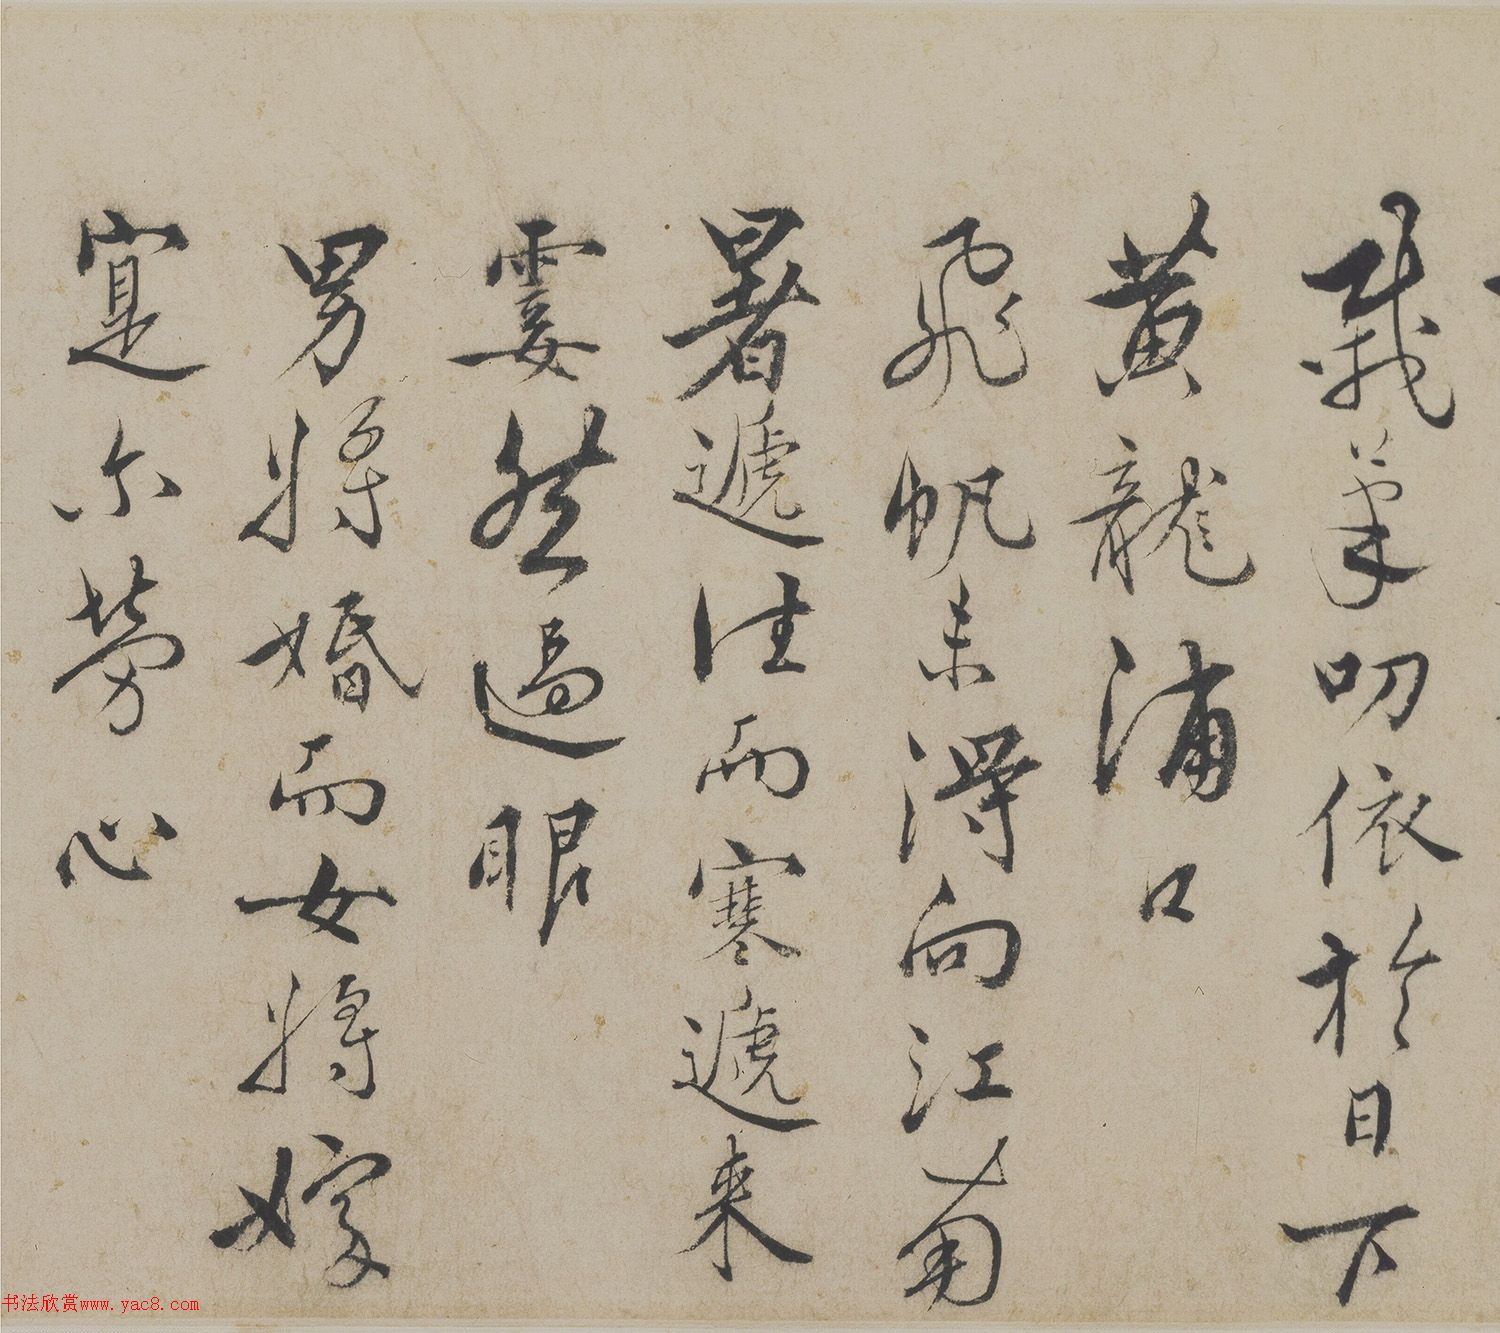 載筆叨依於日下
黃龍浦口
飛帆未得向江南
暑遞往而寒遞来
霎然過眼
男將婚而女將嫁
寔尓勞心
书法欣赏www.yac8.com